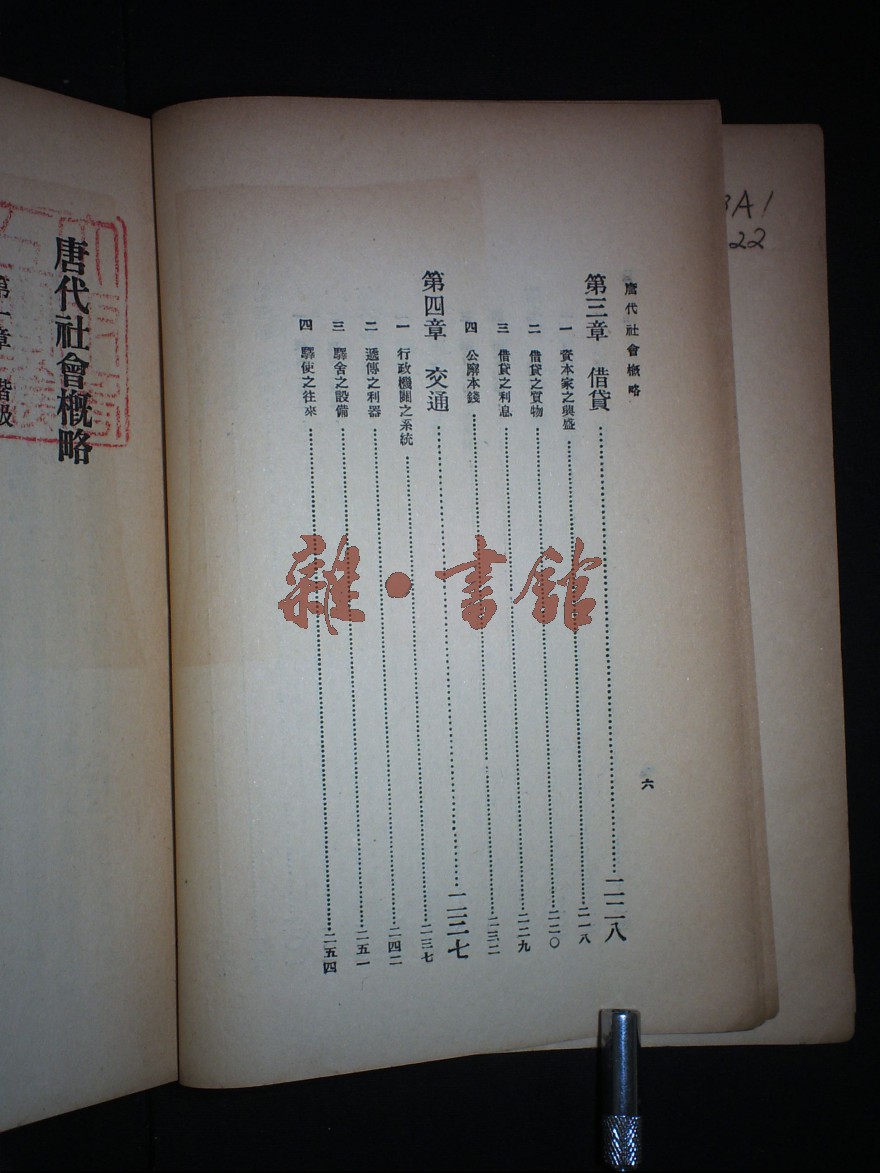 唐代社會概略
六
第三章 借貸……二一八
一 資本家之興盛……二一八
二 借貸之質物……二二〇
三 借貸之利息……二二九
四 公廨本錢……二三二
第四章 交通……二三七
一 行政機關之系統……二三七
二 遞傳之利器……二四二
三 驛舍之設備……二五一
四 驛使之往來……二五四
唐代社會概略
第一章 階級
雜·書館
A1
22